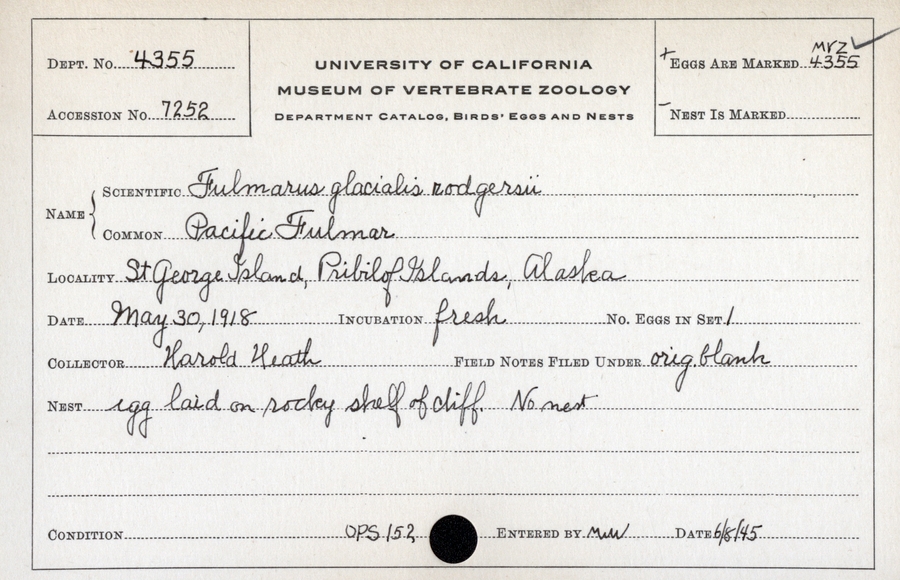 Dept. No. 4355
Accession No. 7252
UNIVERSITY OF CALIFORNIA
MUSEUM OF VERTEBRATE ZOOLOGY
Department Catalog, Birds' Eggs and Nests
MVZ
+ Eggs Are Marked 4355
- Nest Is Marked
Name
Scientific Fulmarus glacialis rodgersii
Common Pacific Fulmar
Locality St George Island, Pribilof Islands, Alaska
Date May 30, 1918 Incubation fresh No. Eggs in Set 1
Collector Harold Heath Field Notes Filed Under orig. blank
Nest egg laid on rocky shelf of cliff. No nest
Condition OPS 152 Entered by Date 6/8/45